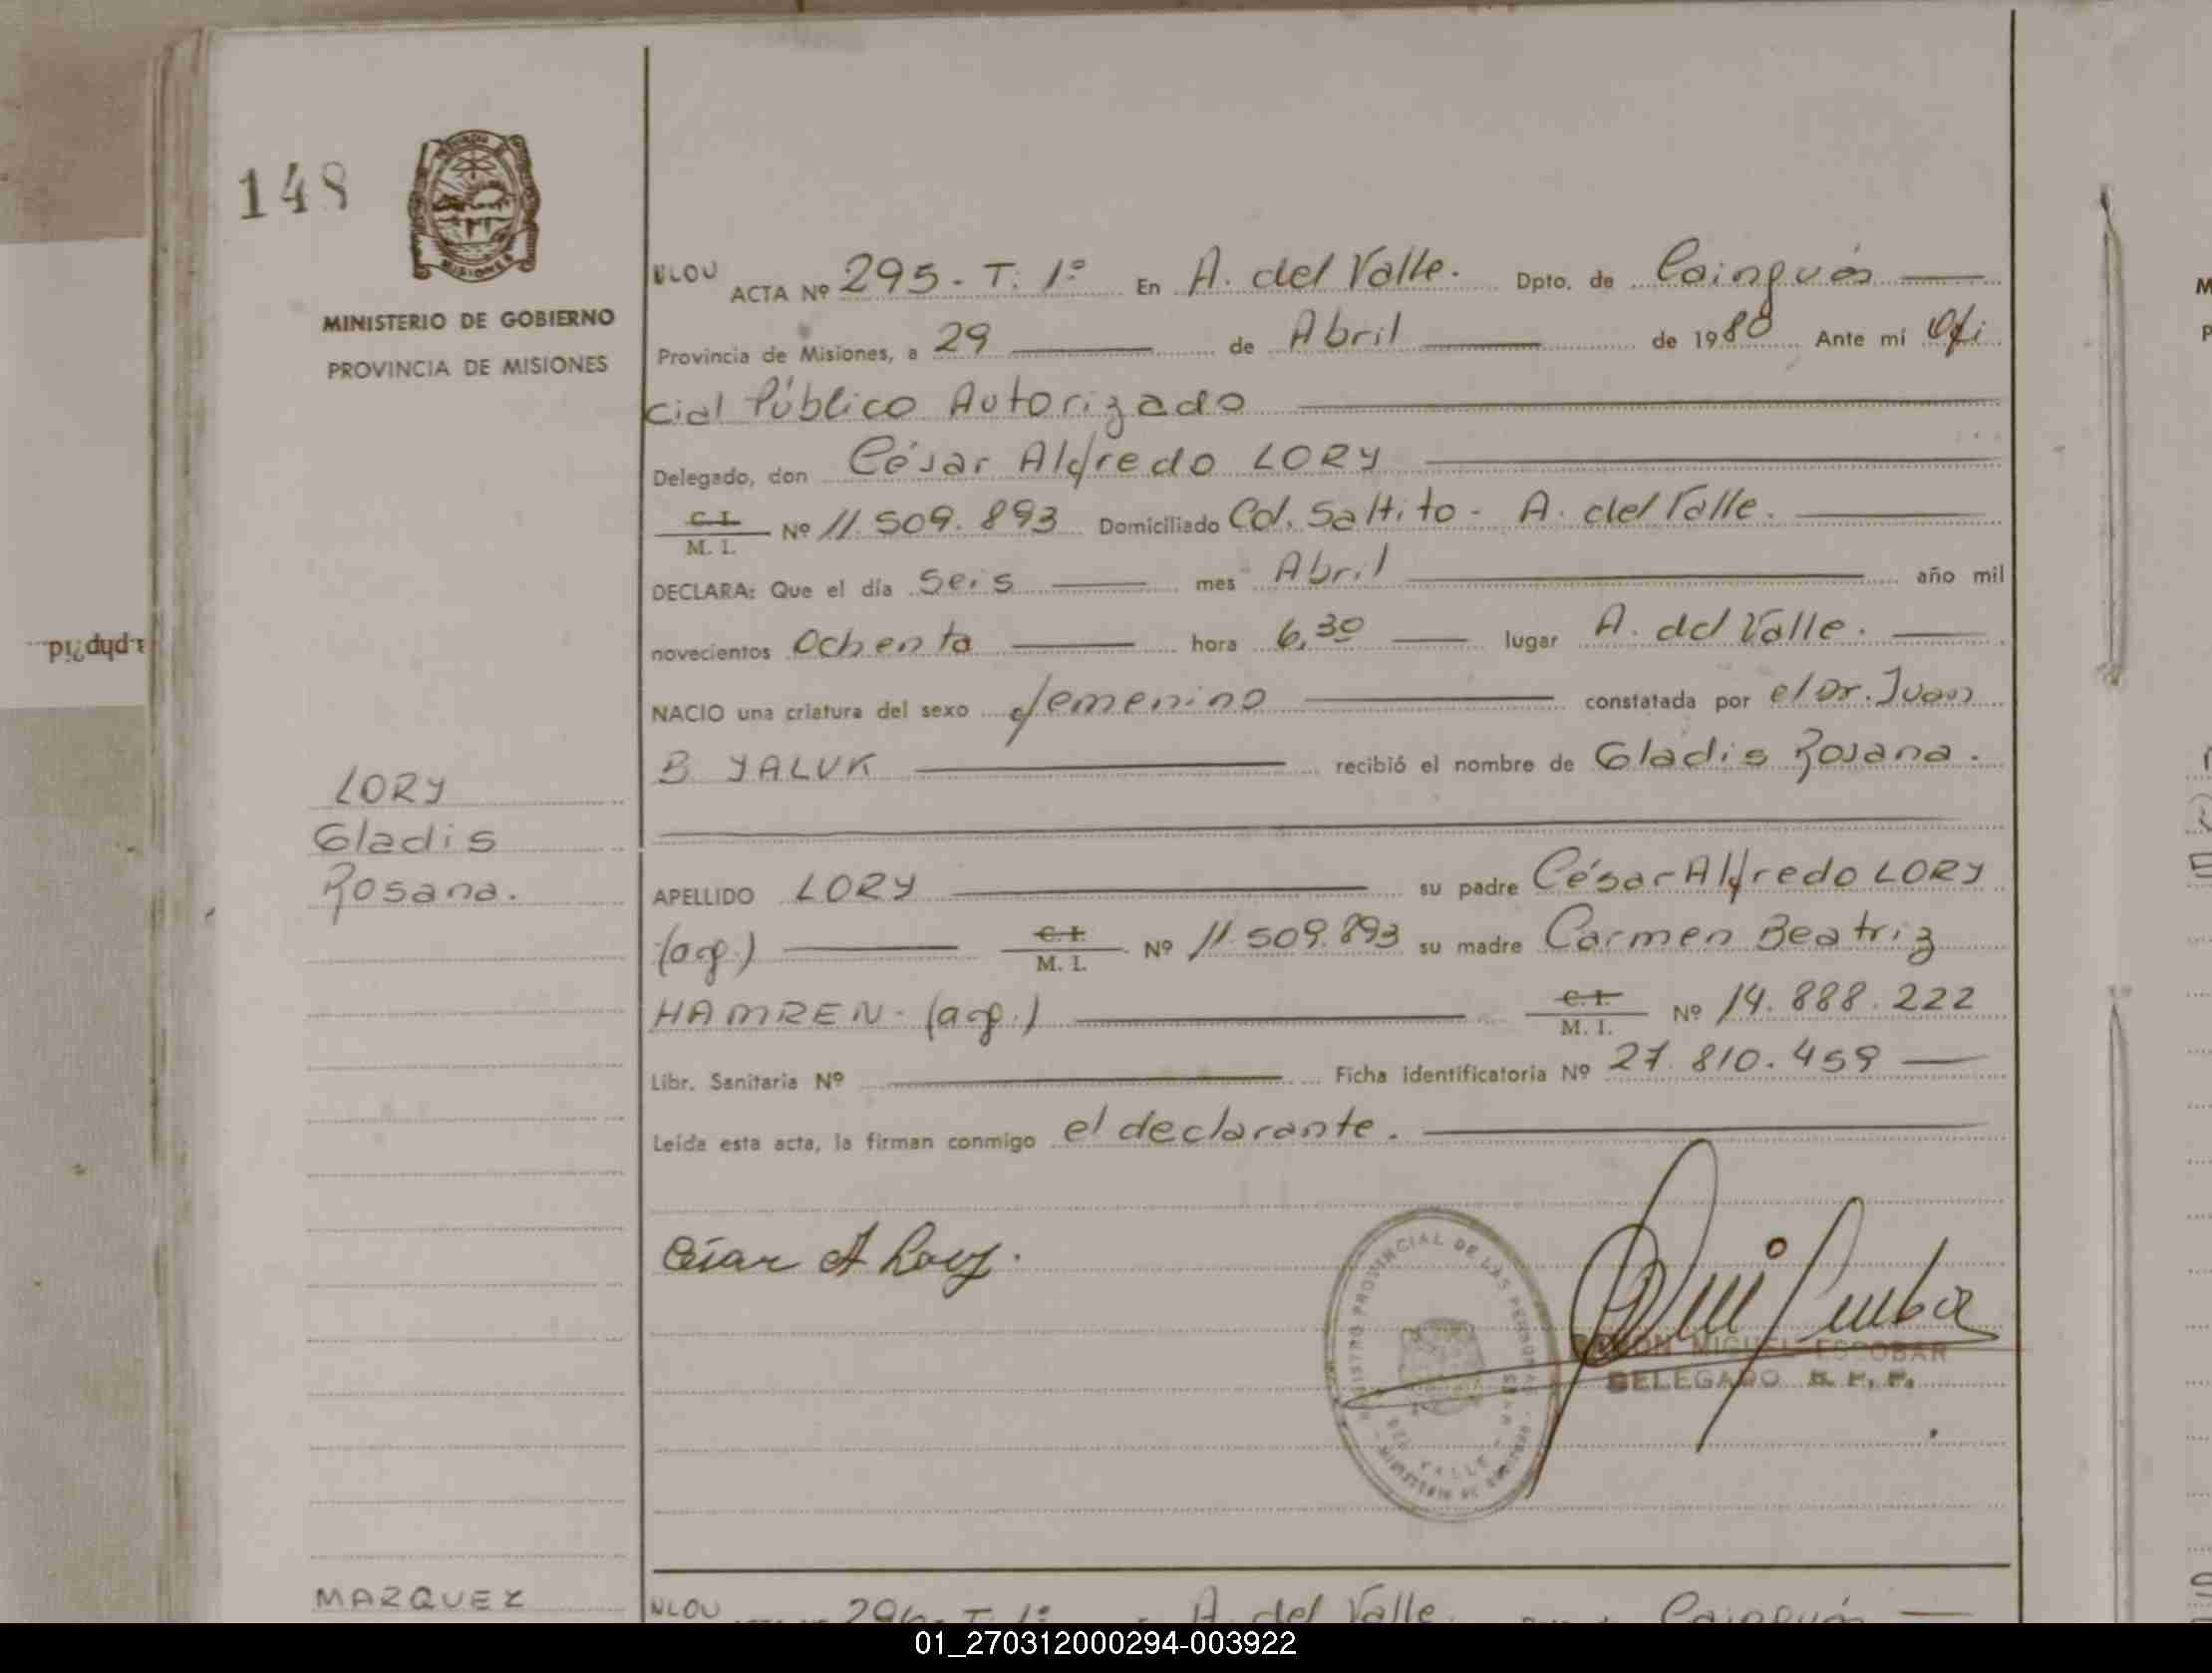 148
MISIONES
MINISTERIO DE GOBIERNO
PROVINCIA DE MISIONES
ACTA Nº 295 - T. 1º En A. del Valle. Dpto. de Cainguás
Provincia de Misiones, a 29 de Abril de 1980 Ante mí Ofi
cial Público Autorizado
Delegado, don César Alfredo LORY
C. I.
M. I. Nº 11.509.893 Domiciliado Col. Saltito - A. del Valle.
DECLARA: Que el día seis mes Abril año mil
novecientos Ochenta hora 6,30 lugar A. del Valle.
NACIO una criatura del sexo femenino constatada por el Dr. Juan
B YALUK recibió el nombre de Gladis Rosana.
LORY
Gladis
Rosana.
APELLIDO LORY su padre César Alfredo LORY
(arg.) C. I.
M. I. Nº 11.509.893 su madre Carmen Beatriz
HAMREN - (arg.) C. I.
M. I. Nº 14.888.222
Libr. Sanitaria Nº Ficha identificatoria Nº 27.810.459
Leída esta acta, la firman conmigo el declarante.
César A Lory.
REGISTRO PROVINCIAL DE LAS PERSONAS
DEL VALLE
MIGUEL ESCOBAR
DELEGADO R. P. P.
MARQUEZ
296 - T. 1º A. del Valle Cainguás
a.php?id
01_270312000294-003922